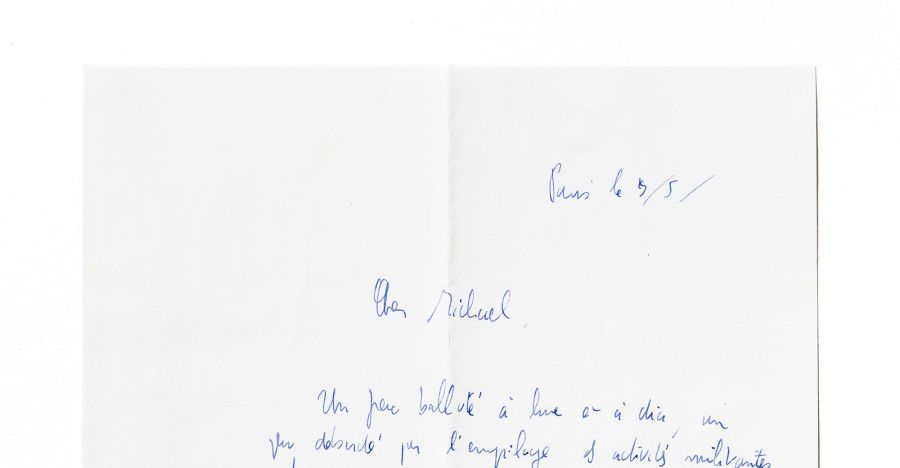 Paris le 9/5/
Cher Michael,
Un peu ballotté à hue et à dia, un
peu débordé par l'empilage des activités militantes